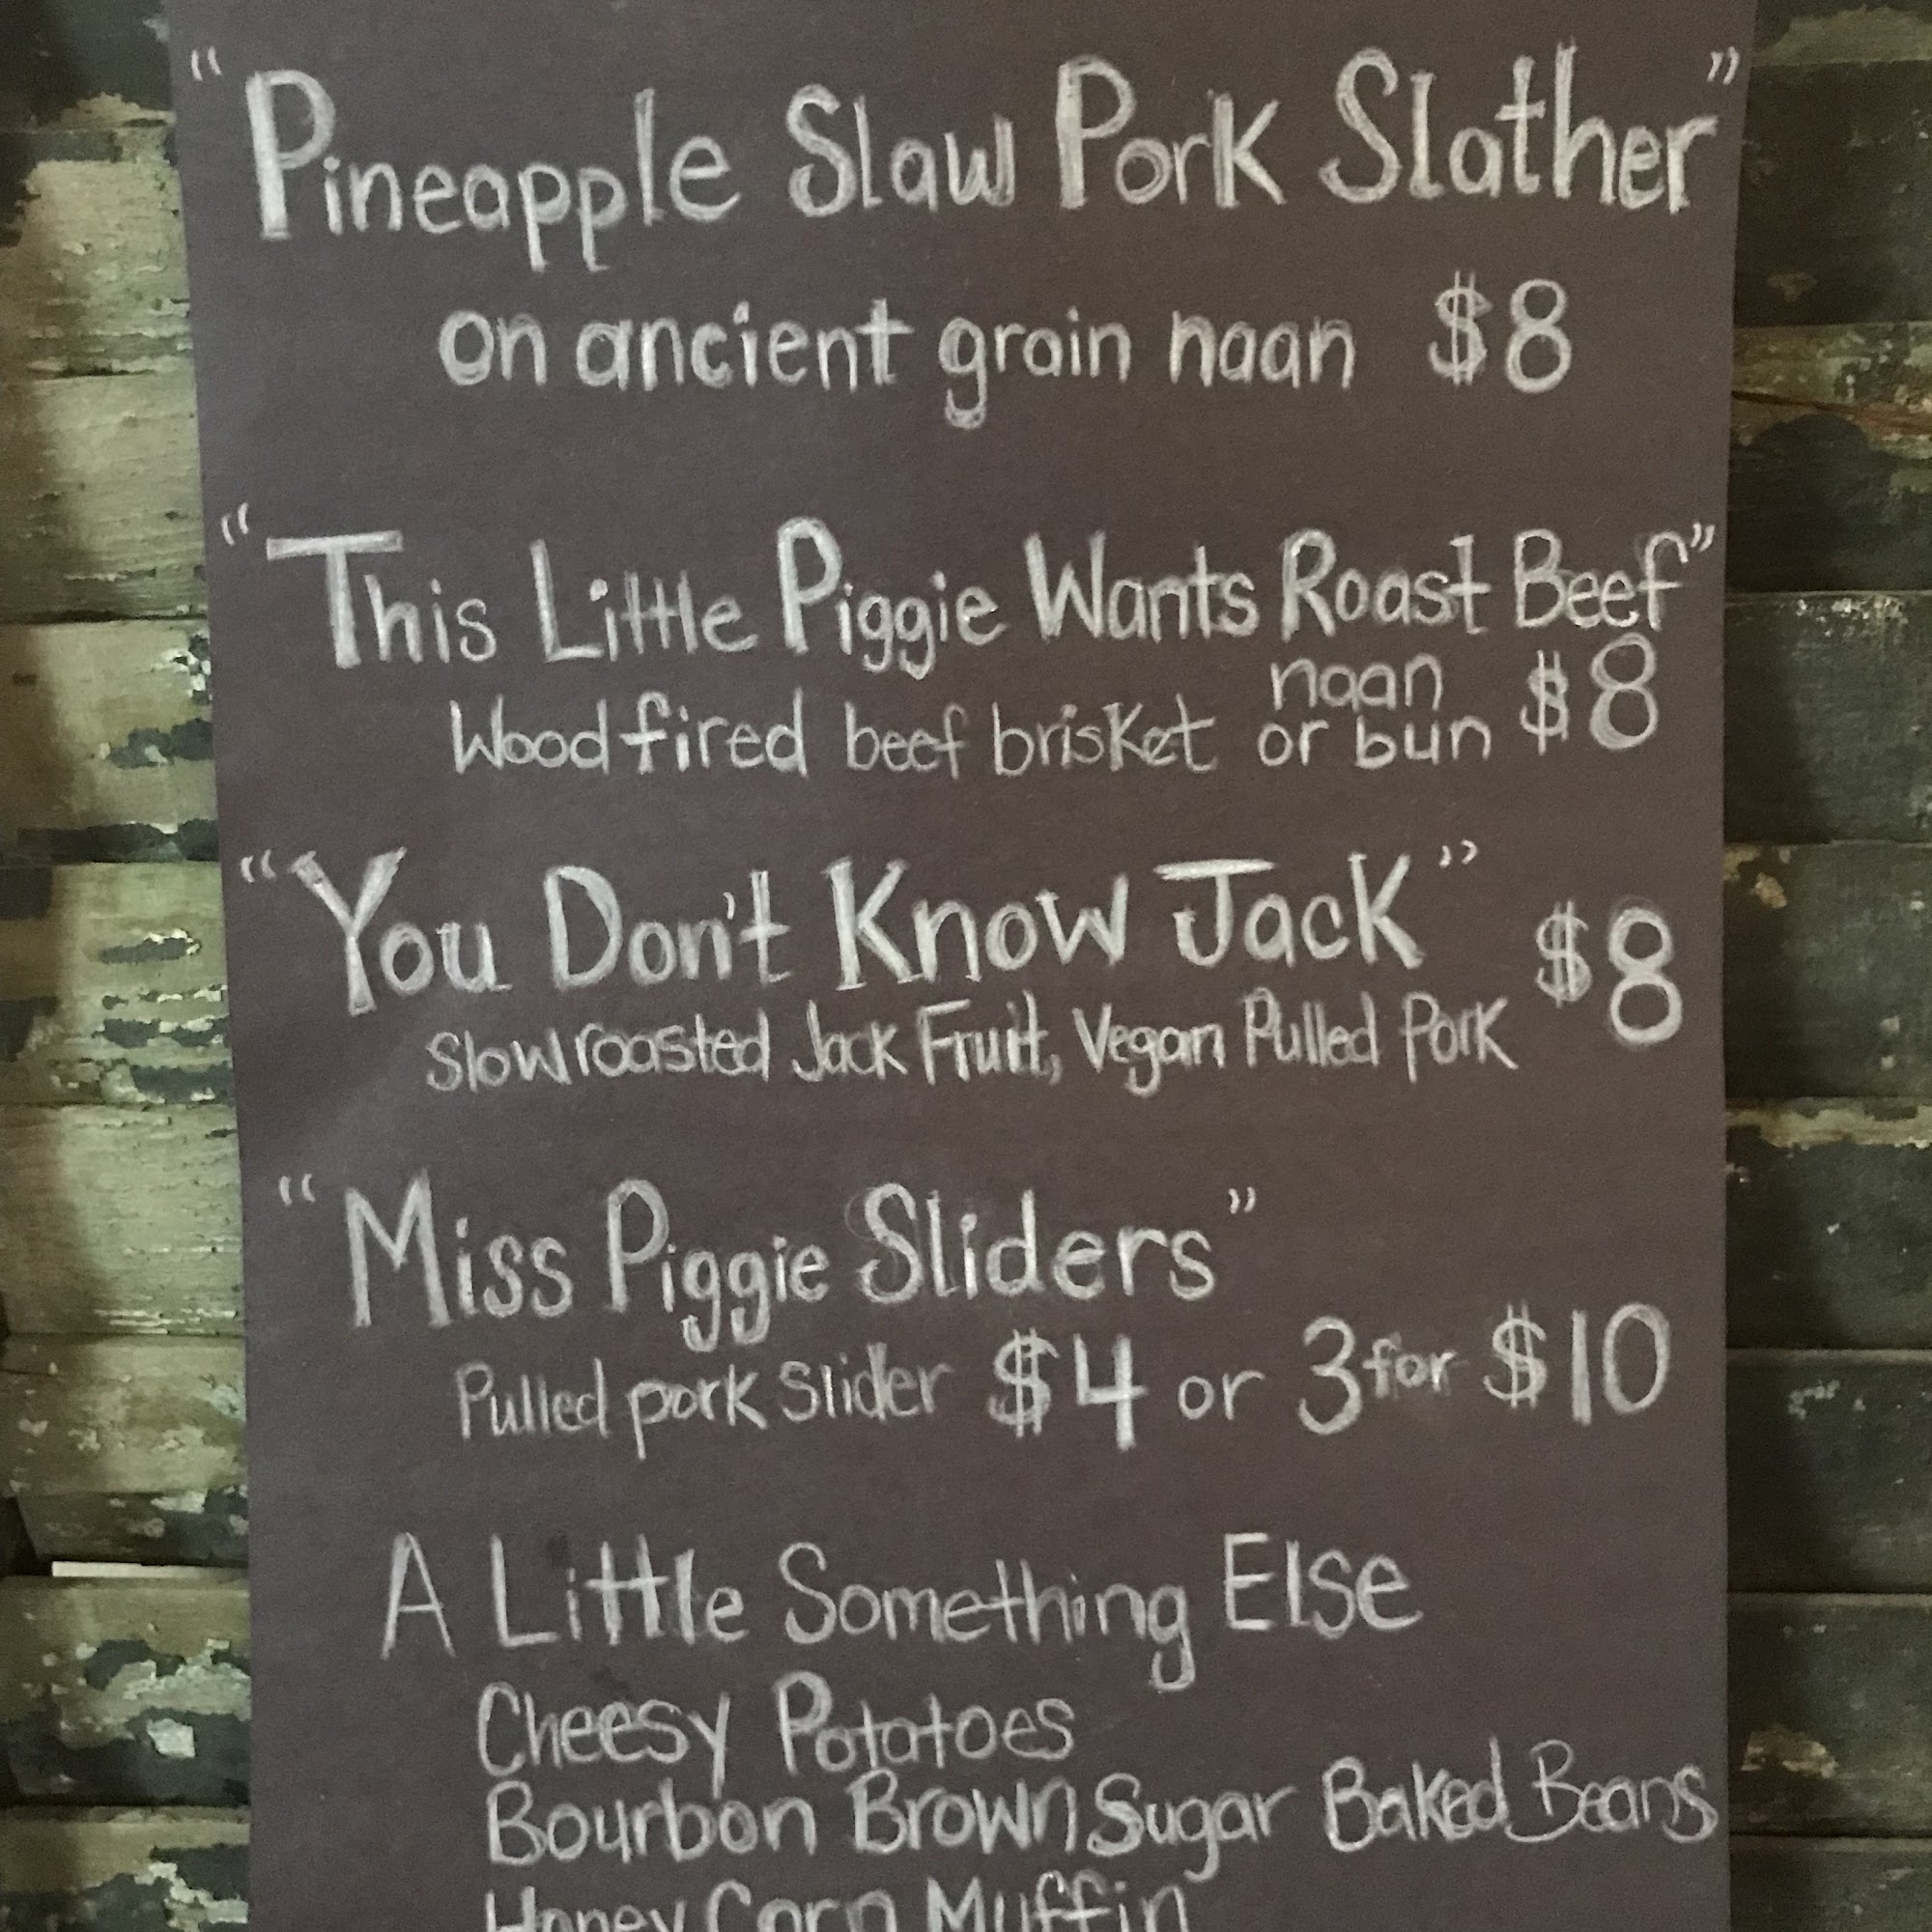 "Pineapple Slaw Pork Slather"
on ancient grain naan $8
"This Little Piggie Wants Roast Beef"
Wood fired beef brisket naan or bun $8
"You Don't Know Jack" $8
Slow roasted Jack Fruit, Vegan Pulled Pork
"Miss Piggie Sliders"
Pulled pork Slider $4 or 3 for $10
A Little Something Else
Cheesy Potatoes
Bourbon Brown Sugar Baked Beans
Honey Corn Muffin